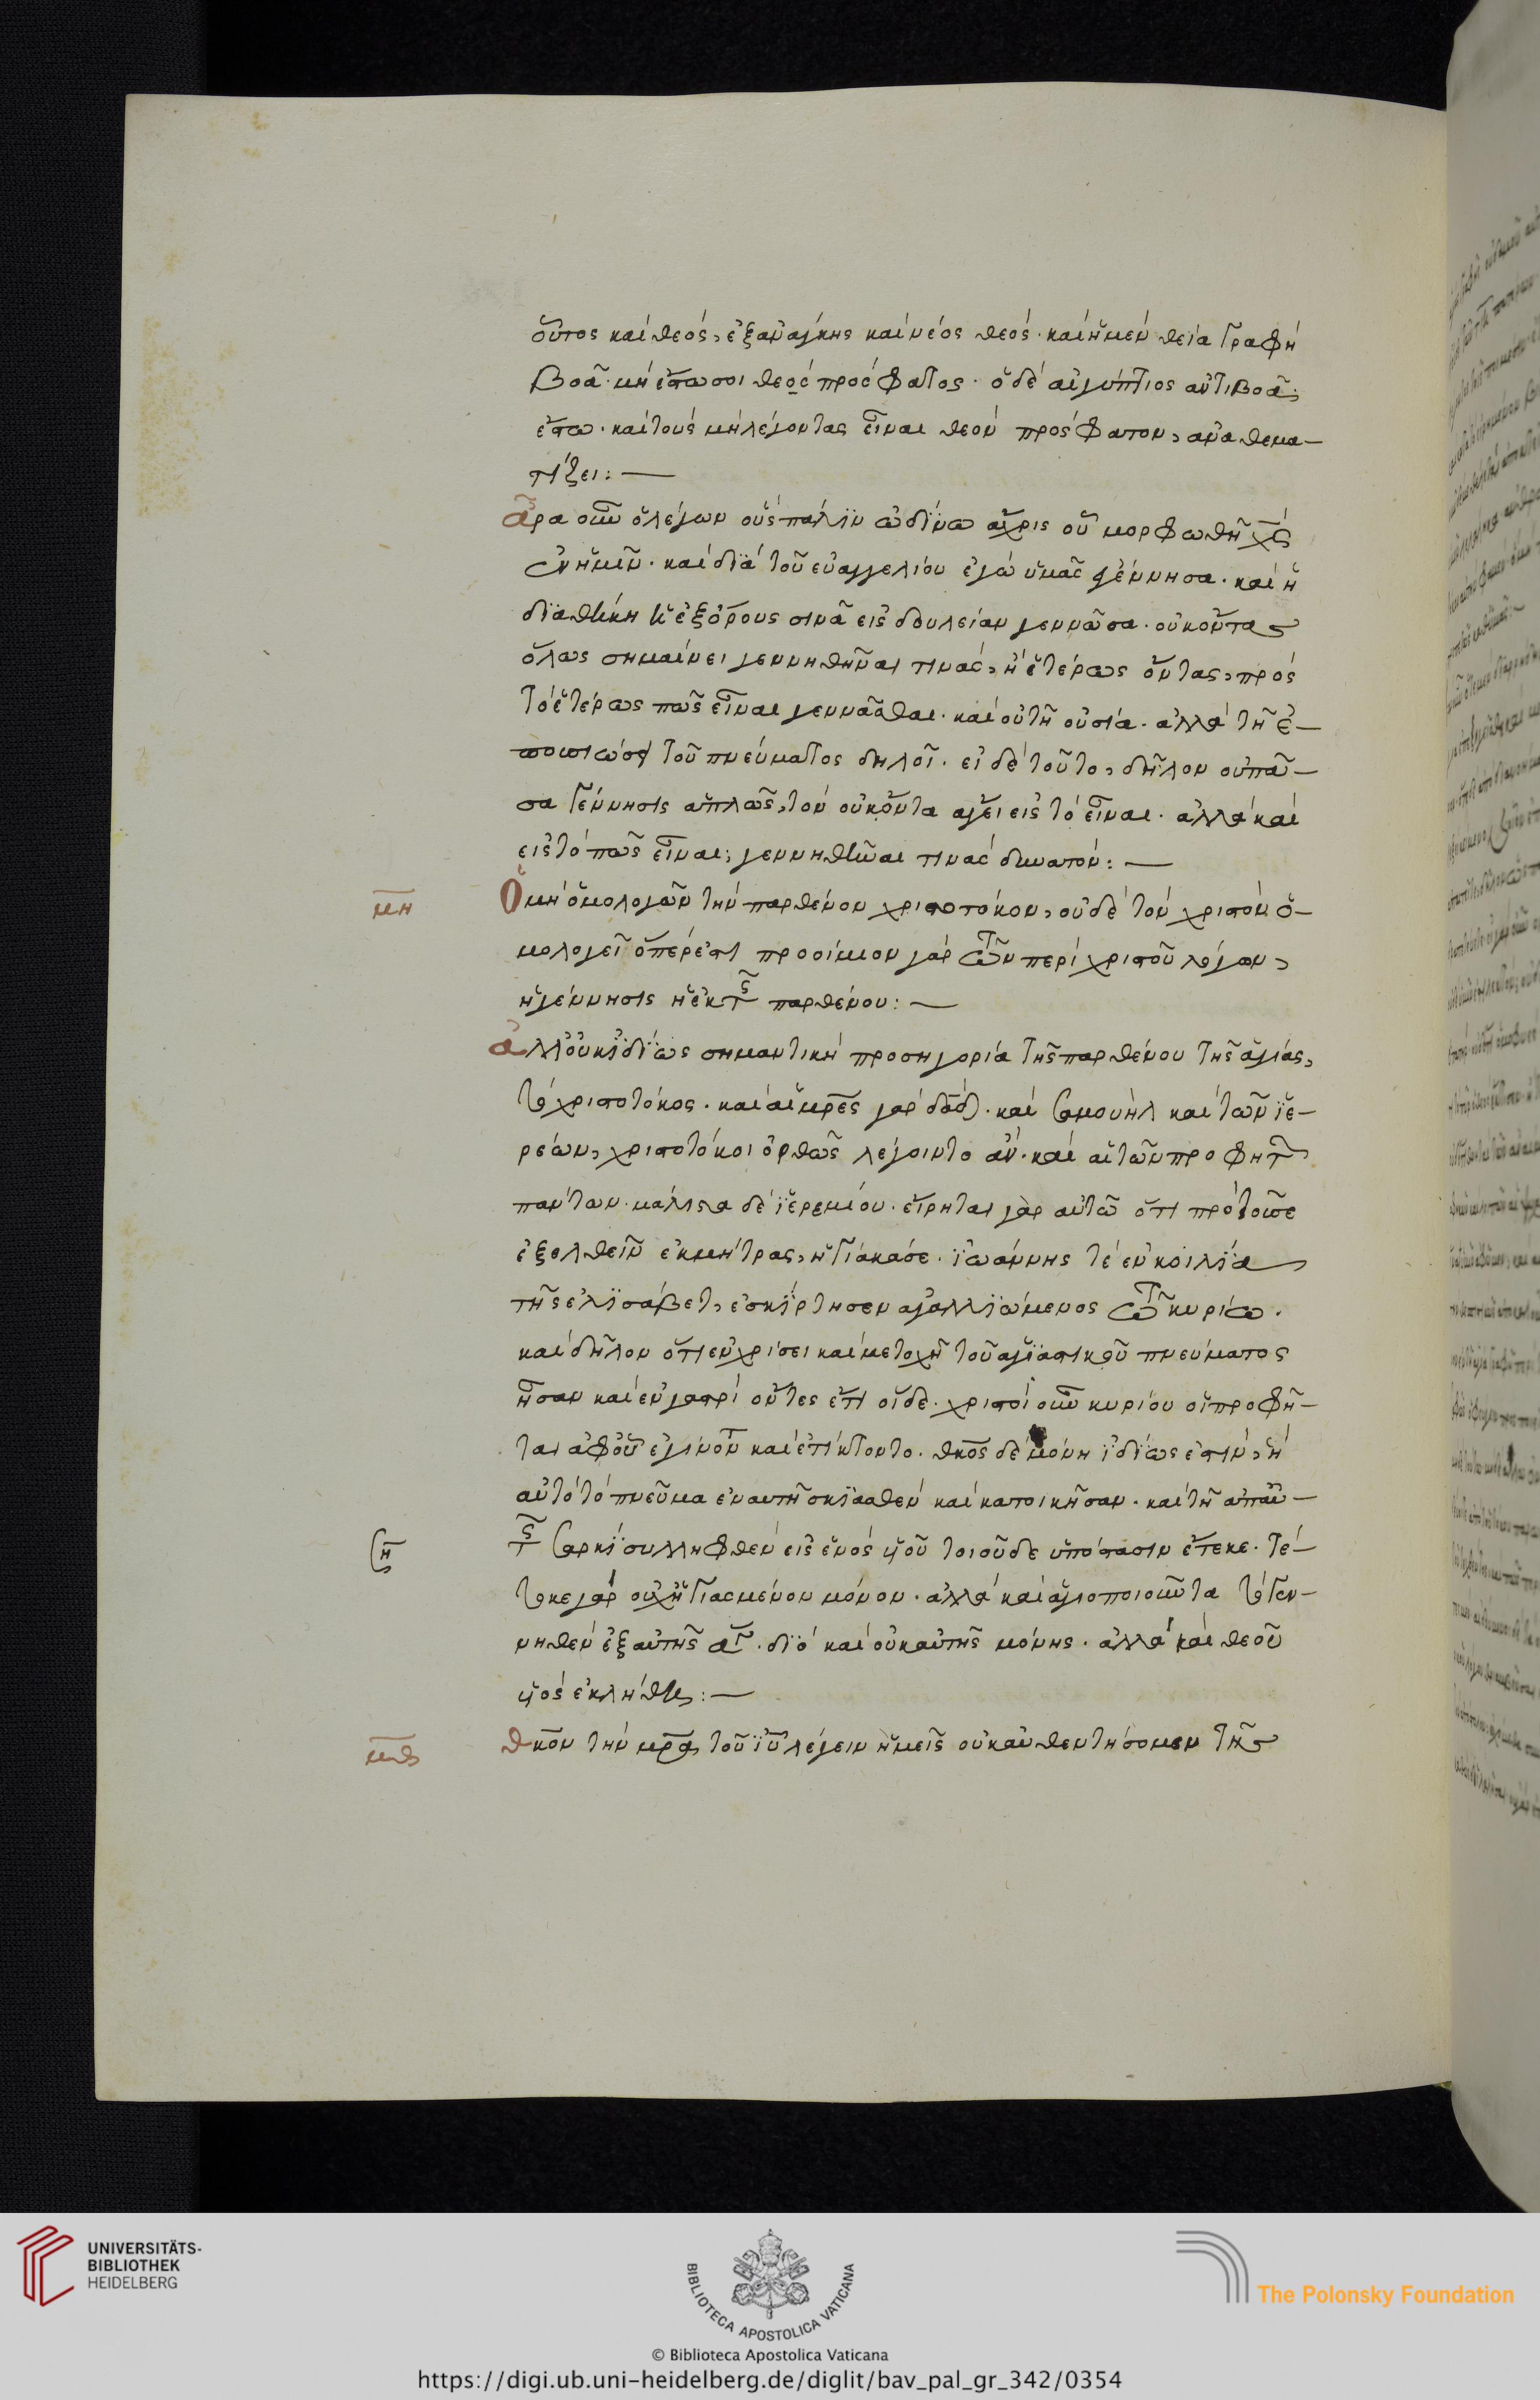 οὗτος καὶ θεός, ἐξ ἀνάγκης καὶ νέος θεός. καὶ ἡ μὲν θεία γραφὴ
βοᾶ. μὴ ἔστω σοι θεὸς πρόσφατος. ὁ δὲ αἰγύπτιος ἀντιβοᾶ.
ἔστω. καὶ τοὺς μὴ λέγοντας εἶναι θεὸν πρόσφατον, ἀναθεμα–
τίζει: —
ἆρα οὖν ὁ λέγων οὓς πάλϊν ὠδΐνω ἄχρις οὗ μορφωθῆ χς
ἐν ἡμῖν. καὶ δϊὰ τοῦ εὐαγγελίου ἐγὼ ὑμᾶς ἐγέννησα. καὶ ἡ
δϊαθήκη ἡ ἐξ ὄρους σινᾶ εἰς δουλείαν γεννῶσα. οὐκ ὄντας
ὅλως σημαίνει γεννηθῆναι τινάς, ἢ ἑτέρως ὄντας, πρὸς
τὸ ἑτέρως πως εἶναι γεννᾶσθαι. καὶ οὐ τῆ οὐσία. ἀλλὰ τῆ ἐ–
τοῦ πνεύματος δηλοῖ. εἰ δὲ τοῦτο, δῆλον οὐ πᾶ–
σα γέννησις ἁπλῶς, τὸν οὐκ ὄντα ἄγει εἰς τὸ εἶναι. ἀλλὰ καὶ
εἰς τό πως εἶναι, γεννηθῆναι τινὰς δυνατόν: —
μη Ὁ μὴ ὁμολογῶν τὴν παρθένον χριστοτόκον, οὐδὲ τὸν χριστὸν ὁ–
μολογεῖ ὅπερ ἐστὶ προοίμιον γὰρ τῶν περὶ χριστοῦ λόγων,
ἡ γέννησις ἡ ἐκ τῆς παρθένου: —
ἀλλ' οὐκ ϊδϊως σημαντικὴ προσηγορία τῆς παρθένου τῆς ἁγίας,
τὸ χριστοτόκος. καὶ αἱ μρες γὰρ δαδ. καὶ σαμουὴλ καὶ τῶν ϊε–
ρέων, χριστοτόκοι ὀρθῶς λέγοιντο ἄν. καὶ αἱ τῶν προφητ
πάντων. μάλιστα δὲ ϊερεμίου. εἴρηται γὰρ αὐτῶ ὅτι πρὸ τοῦ σε
ἐξελθεῖν ἐκ μήτρας, ἡγίακά σε. ϊωάννης τὲ ἐν κοιλϊα
τῆς ἐλϊσάβετ, ἐσκϊρτησεν ἀγαλλϊώμενος τῶ κυρίω.
καὶ δῆλον ὅτι ἐν χρίσει καὶ μετοχῆ τοῦ ἁγϊαστικοῦ πνεύματος
ἦσαν καὶ ἐν γαστρὶ ὄντες ἔτι οἵδε. χριστοὶ οὖν κυρίου οἱ προφῆ–
ται ἀφ' οὗ ἐγίνοντ καὶ ἐτίκτοντο. θκος δὲ μόνη ϊδϊως ἐστὶν, ἡ
αὐτὸ τὸ πνεῦμα ἐν αὐτῆ σκϊασθὲν καὶ κατοικῆσαν. καὶ τῆ
ση τῆς σαρκὶ συλληφθὲν εἰς ἑνὸς υἱοῦ τοιοῦδε ὑπόστασιν ἔτεκε. τέ–
τοκε γὰρ οὐχ ἡγιασμένον μόνον. ἀλλὰ καὶ ἁγιοποιοῦντα τὸ γεν–
νηθὲν ἐξ αὐτῆς. δϊὸ καὶ οὐκ αὐτῆς μόνης. ἀλλὰ καὶ θεοῦ
υἱὸς ἐκλήθη: —
μθ θκον τὴν μρα τοῦ ϊυ λέγειν ἡμεῖς οὐκ αὐθεντήσομεν τῆς
UNIVERSITÄTS-
BIBLIOTHEK
HEIDELBERG
BIBLIOTECA APOSTOLICA VATICANA
The Polonsky Foundation
© Biblioteca Apostolica Vaticana
https://digi.ub.uni-heidelberg.de/diglit/bav_pal_gr_342/0354